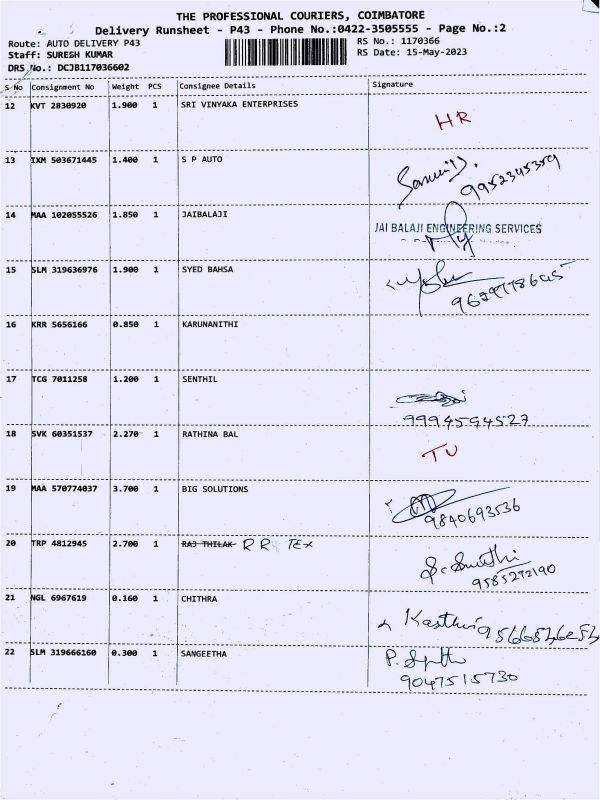 THE PROFESSIONAL COURIERS, COIMBATORE
Delivery Runsheet - P43 - Phone No.:0422-3505555 - Page No.:2
Route: AUTO DELIVERY P43 RS No.: 1170366
Staff: SURESH KUMAR RS Date: 15-May-2023
DRS No.: DCJB117036602
S No Consignment No Weight PCS Consignee Details Signature
12 KVT 2830920 1.900 1 SRI VINYAKA ENTERPRISES
HR
13 IXM 503671445 1.400 1 S P AUTO
9952345359
14 MAA 102055526 1.850 1 JAIBALAJI
JAI BALAJI ENGINEERING SERVICES
15 SLM 319636976 1.900 1 SYED BAHSA
16 KRR 5656166 0.850 1 KARUNANITHI
17 TCG 7011258 1.200 1 SENTHIL
9994594527
18 SVK 60351537 2.270 1 RATHINA BAL
TU
19 MAA 570774037 3.700 1 BIG SOLUTIONS
9840693536
20 TRP 4812945 2.700 1 RAJ THILAK R R TEX
9585272190
21 NGL 6967619 0.160 1 CHITHRA
22 SLM 319666160 0.300 1 SANGEETHA
9047515730